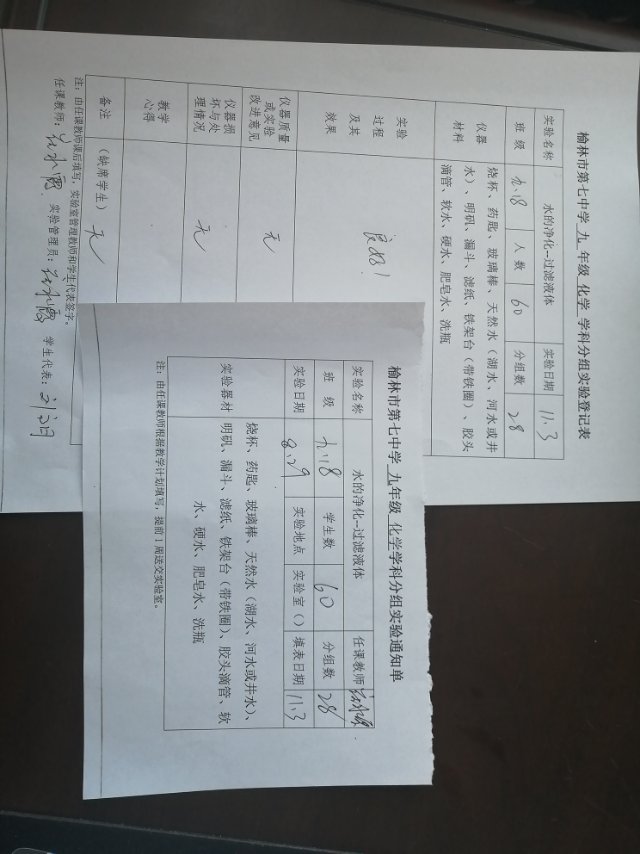 榆林市第七中学 九 年级 化学 学科分组实验登记表
实验名称 水的净化--过滤液体 实验日期 11.3
班 级 九.18 人 数 60 分组数 28
仪器材料 烧杯、药匙、玻璃棒、天然水（湖水、河水或井
水）、明矾、漏斗、滤纸、铁架台（带铁圈）、胶头
滴管、软水、硬水、肥皂水、洗瓶
实验过程及其效果 良好！
仪器质量或实验改进意见 无
仪器损坏与处理情况 无
教学心得
备注 （缺席学生） 无
注：由任课教师课后填写，实验室管理教师和学生代表签字。
任课教师： 实验管理员： 学生代表：
榆林市第七中学 九年级 化学学科分组实验通知单
实验名称 水的净化--过滤液体 任课教师
班 级 九.18 学生数 60 分组数 28
实验日期 8.29 实验地点 实验室（） 填表日期 11.3
实验器材 烧杯、药匙、玻璃棒、天然水（湖水、河水或井水）、
明矾、漏斗、滤纸、铁架台（带铁圈）、胶头滴管、软
水、硬水、肥皂水、洗瓶
注：由任课教师根据教学计划填写，提前1周送交实验室。